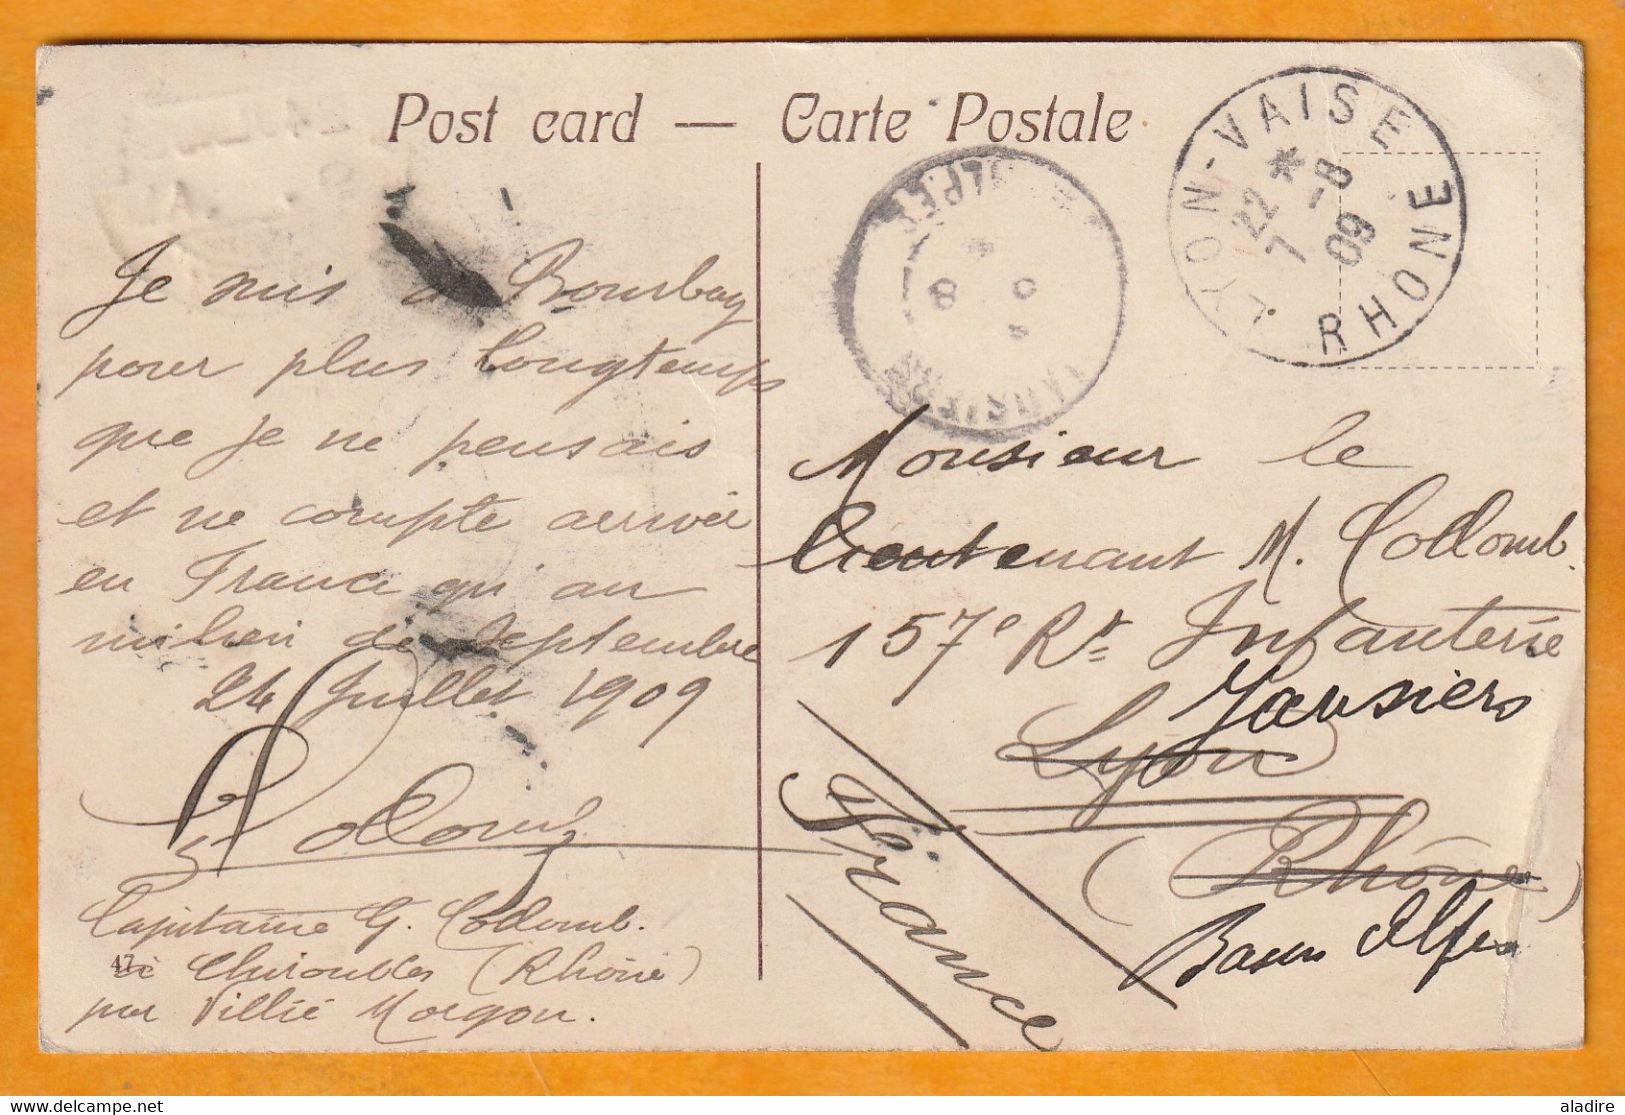 Post card — Carte Postale
LYON-VAISE
22 *
7 -8
09
RHONE
JAUSIERS
8
Je suis à Bombay
pour plus longtemps
que je ne pensais
et ne compte arriver
en France qu'au
milieu de Septembre
24 Juillet 1909
Collomb
Capitaine G. Collomb.
à Chiroubles (Rhône)
par Villié Morgon.
47
Monsieur le
Lieutenant M. Collomb.
157e Rt Infanterie
Jausiers
Lyon
(Rhône)
Basses Alpes
France
aladire